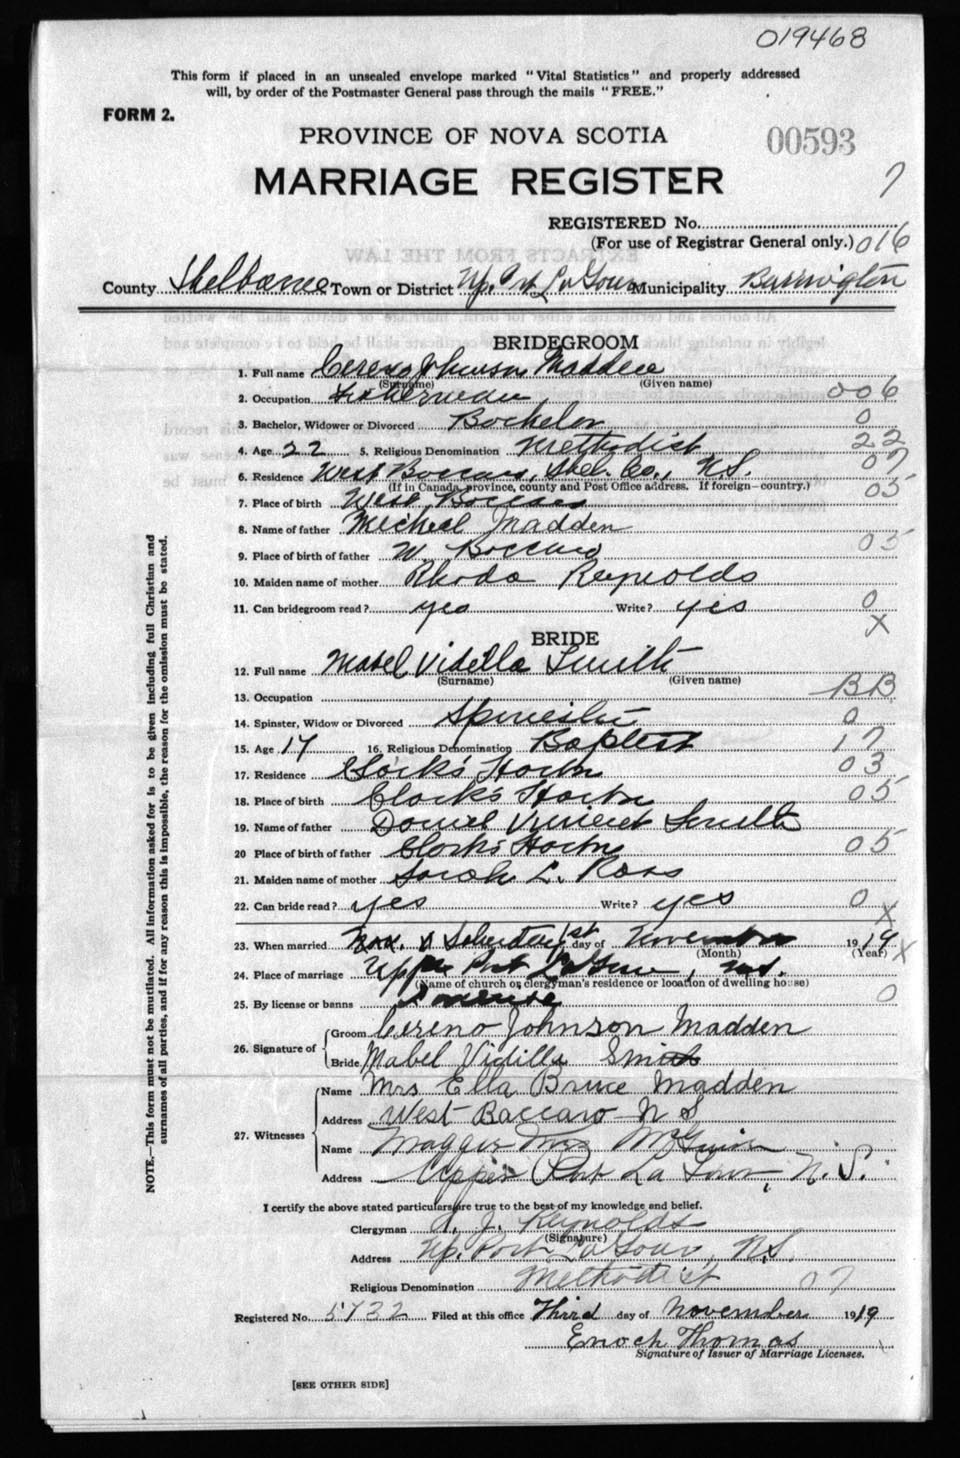 019468
This form if placed in an unsealed envelope marked "Vital Statistics" and properly addressed
will, by order of the Postmaster General pass through the mails "FREE."
FORM 2.
PROVINCE OF NOVA SCOTIA
00593
MARRIAGE REGISTER
7
REGISTERED No.
(For use of Registrar General only.) 016
County Shelburne Town or District Up. Port LaTour Municipality Barrington
BRIDEGROOM
1. Full name Cereno Johnson Madden
(Surname) (Given name)
2. Occupation Fisherman 006
3. Bachelor, Widower or Divorced Bachelor 0
4. Age 22 5. Religious Denomination Methodist 22
6. Residence West Baccaro, Shel. Co., N.S. 07
(If in Canada, province, county and Post Office address. If foreign—country.) 05
7. Place of birth West Baccaro
8. Name of father Micheal Madden
9. Place of birth of father W. Baccaro 05
10. Maiden name of mother Rhoda Reynolds
11. Can bridegroom read? yes Write? yes 0
X
BRIDE
12. Full name Mabel Vidella Smith
(Surname) (Given name)
13. Occupation BB
14. Spinster, Widow or Divorced Spinster 0
15. Age 17 16. Religious Denomination Baptist 17
17. Residence Clark's Harbor 03
18. Place of birth Clark's Harbor 05
19. Name of father Daniel Vincent Smith
20 Place of birth of father Clark's Harbor 05
21. Maiden name of mother Sarah L. Ross
22. Can bride read? yes Write? yes 0
X
23. When married 1st day of November 1919 X
(Month) (Year)
24. Place of marriage Upper Port LaTour, N.S.
(Name of church or clergyman's residence or location of dwelling house)
25. By license or banns License 0
26. Signature of Groom Cereno Johnson Madden
Bride Mabel Vidilla Smith
27. Witnesses Name Mrs Ella Bruce Madden
Address West Baccaro N S
Name Maggie
Address Upper Port La Tour, N. S.
I certify the above stated particulars are true to the best of my knowledge and belief.
Clergyman J. Reynolds
(Signature)
Address Up. Port LaTour, N.S.
Religious Denomination Methodist 07
Registered No. 5732 Filed at this office Third day of November 1919
Enoch Thomas
Signature of Issuer of Marriage Licenses.
[SEE OTHER SIDE]
NOTE.—This form must not be mutilated. All information asked for is to be given including full Christian and
surnames of all parties, and if for any reason this is impossible, the reason for the omission must be stated.